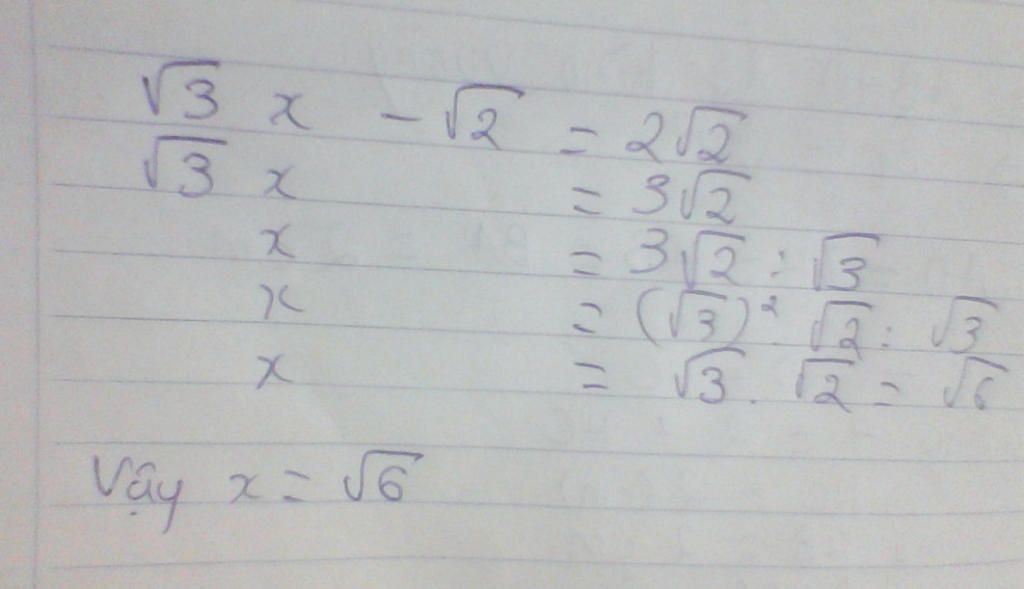 √3 x - √2 = 2√2
√3 x = 3√2
x = 3√2 : √3
x = (√3)². √2 : √3
x = √3 . √2 = √6
Vậy x = √6